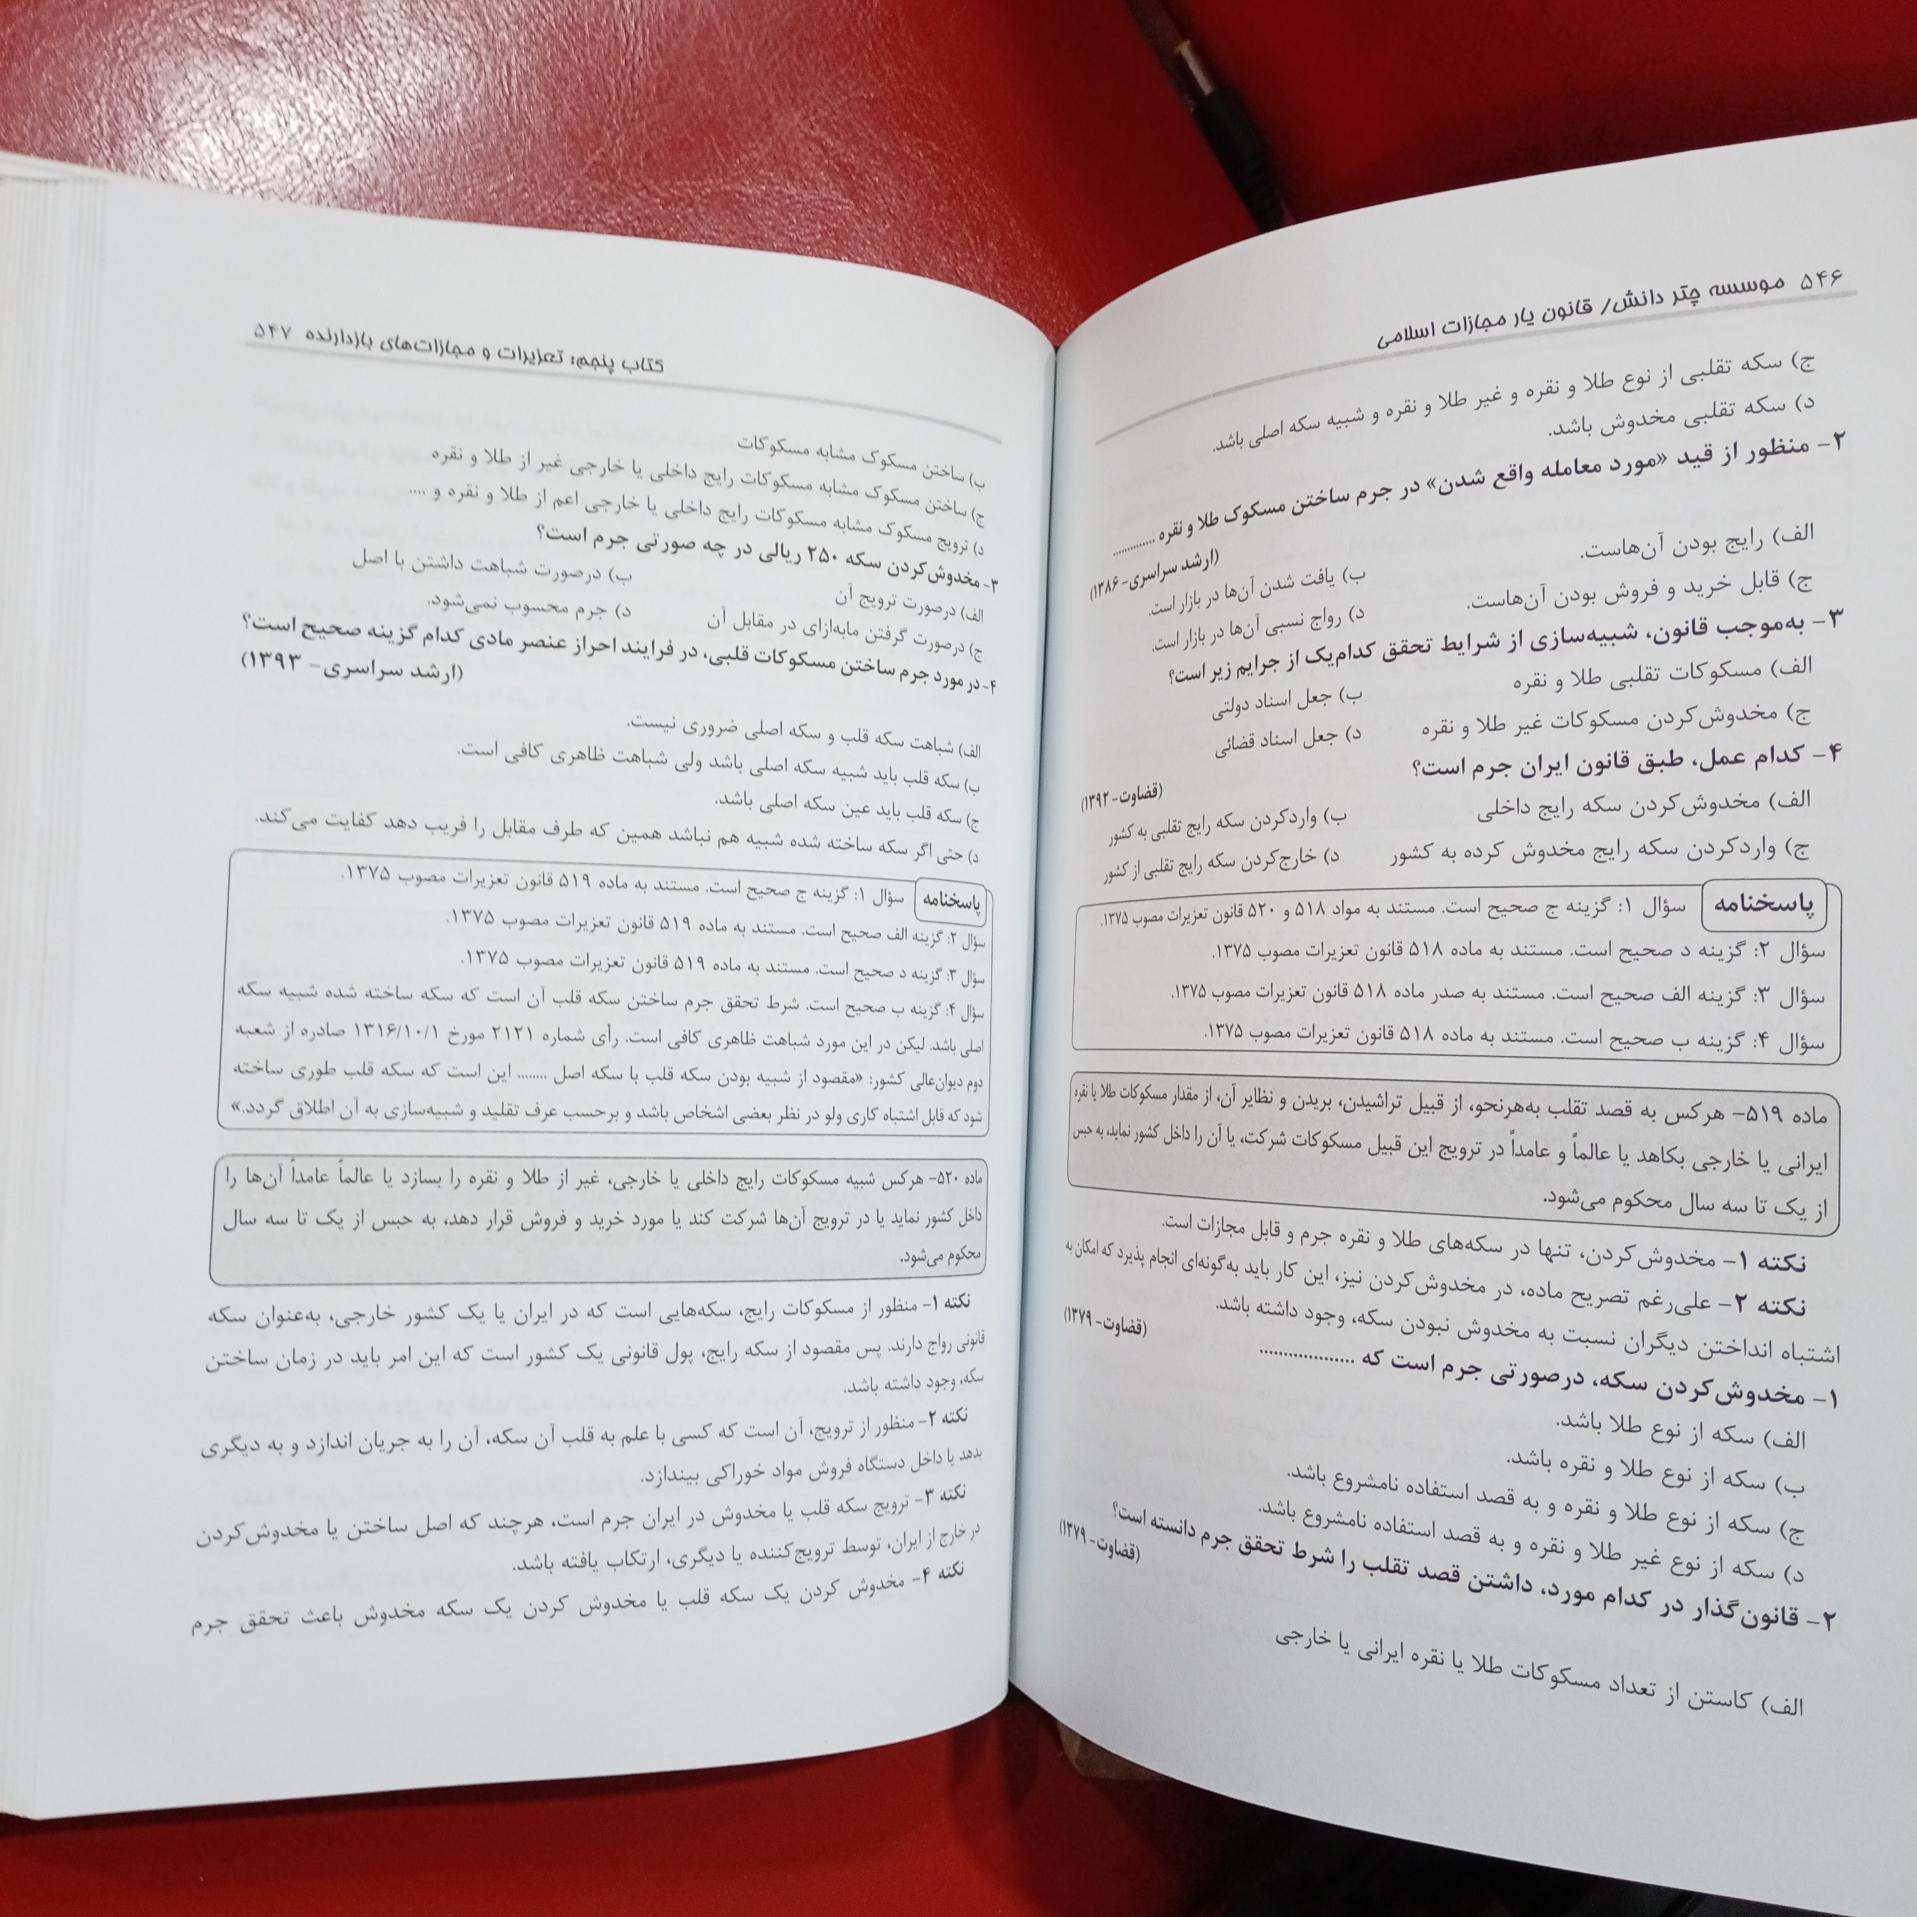 ۵۴۶ موسسه چتر دانش/ قانون یار مجازات اسلامی
ج) سکه تقلبی از نوع طلا و نقره و غیر طلا و نقره و شبیه سکه اصلی باشد.
د) سکه تقلبی مخدوش باشد.
۲- منظور از قید «مورد معامله واقع شدن» در جرم ساختن مسکوک طلا و نقره .............
(ارشد سراسری- ۱۳۸۶)
الف) رایج بودن آن‌هاست. ب) یافت شدن آن‌ها در بازار است.
ج) قابل خرید و فروش بودن آن‌هاست. د) رواج نسبی آن‌ها در بازار است.
۳- به‌موجب قانون، شبیه‌سازی از شرایط تحقق کدام‌یک از جرایم زیر است؟
الف) مسکوکات تقلبی طلا و نقره ب) جعل اسناد دولتی
ج) مخدوش‌کردن مسکوکات غیر طلا و نقره د) جعل اسناد قضائی
۴- کدام عمل، طبق قانون ایران جرم است؟
(قضاوت- ۱۳۹۲)
الف) مخدوش‌کردن سکه رایج داخلی ب) واردکردن سکه رایج تقلبی به کشور
ج) واردکردن سکه رایج مخدوش کرده به کشور د) خارج‌کردن سکه رایج تقلبی از کشور
پاسخنامه سؤال ۱: گزینه ج صحیح است. مستند به مواد ۵۱۸ و ۵۲۰ قانون تعزیرات مصوب ۱۳۷۵.
سؤال ۲: گزینه د صحیح است. مستند به ماده ۵۱۸ قانون تعزیرات مصوب ۱۳۷۵.
سؤال ۳: گزینه الف صحیح است. مستند به صدر ماده ۵۱۸ قانون تعزیرات مصوب ۱۳۷۵.
سؤال ۴: گزینه ب صحیح است. مستند به ماده ۵۱۸ قانون تعزیرات مصوب ۱۳۷۵.
ماده ۵۱۹- هرکس به قصد تقلب به‌هرنحو، از قبیل تراشیدن، بریدن و نظایر آن، از مقدار مسکوکات طلا یا نقره
ایرانی یا خارجی بکاهد یا عالماً و عامداً در ترویج این قبیل مسکوکات شرکت، یا آن را داخل کشور نماید، به حبس
از یک تا سه سال محکوم می‌شود.
نکته ۱- مخدوش‌کردن، تنها در سکه‌های طلا و نقره جرم و قابل مجازات است.
نکته ۲- علی‌رغم تصریح ماده، در مخدوش‌کردن نیز، این کار باید به‌گونه‌ای انجام پذیرد که امکان به
اشتباه انداختن دیگران نسبت به مخدوش نبودن سکه، وجود داشته باشد.
(قضاوت- ۱۳۷۹)
۱- مخدوش‌کردن سکه، درصورتی جرم است که ....................
الف) سکه از نوع طلا باشد.
ب) سکه از نوع طلا و نقره باشد.
ج) سکه از نوع طلا و نقره و به قصد استفاده نامشروع باشد.
د) سکه از نوع غیر طلا و نقره و به قصد استفاده نامشروع باشد.
۲- قانون‌گذار در کدام مورد، داشتن قصد تقلب را شرط تحقق جرم دانسته است؟
(قضاوت- ۱۳۷۹)
الف) کاستن از تعداد مسکوکات طلا یا نقره ایرانی یا خارجی
کتاب پنجم: تعزیرات و مجازات‌های بازدارنده ۵۴۷
ب) ساختن مسکوک مشابه مسکوکات
ج) ساختن مسکوک مشابه مسکوکات رایج داخلی یا خارجی غیر از طلا و نقره
د) ترویج مسکوک مشابه مسکوکات رایج داخلی یا خارجی اعم از طلا و نقره و ....
۳- مخدوش‌کردن سکه ۲۵۰ ریالی در چه صورتی جرم است؟
الف) درصورت ترویج آن ب) درصورت شباهت داشتن با اصل
ج) درصورت گرفتن مابه‌ازای در مقابل آن د) جرم محسوب نمی‌شود.
۴- در مورد جرم ساختن مسکوکات قلبی، در فرایند احراز عنصر مادی کدام گزینه صحیح است؟
(ارشد سراسری- ۱۳۹۳)
الف) شباهت سکه قلب و سکه اصلی ضروری نیست.
ب) سکه قلب باید شبیه سکه اصلی باشد ولی شباهت ظاهری کافی است.
ج) سکه قلب باید عین سکه اصلی باشد.
د) حتی اگر سکه ساخته شده شبیه هم نباشد همین که طرف مقابل را فریب دهد کفایت می‌کند.
پاسخنامه سؤال ۱: گزینه ج صحیح است. مستند به ماده ۵۱۹ قانون تعزیرات مصوب ۱۳۷۵.
سؤال ۲: گزینه الف صحیح است. مستند به ماده ۵۱۹ قانون تعزیرات مصوب ۱۳۷۵.
سؤال ۳: گزینه د صحیح است. مستند به ماده ۵۱۹ قانون تعزیرات مصوب ۱۳۷۵.
سؤال ۴: گزینه ب صحیح است. شرط تحقق جرم ساختن سکه قلب آن است که سکه ساخته شده شبیه سکه
اصلی باشد. لیکن در این مورد شباهت ظاهری کافی است. رأی شماره ۲۱۲۱ مورخ ۱۳۱۶/۱۰/۱ صادره از شعبه
دوم دیوان‌عالی کشور: «مقصود از شبیه بودن سکه قلب با سکه اصل ........ این است که سکه قلب طوری ساخته
شود که قابل اشتباه کاری ولو در نظر بعضی اشخاص باشد و برحسب عرف تقلید و شبیه‌سازی به آن اطلاق گردد.»
ماده ۵۲۰- هرکس شبیه مسکوکات رایج داخلی یا خارجی، غیر از طلا و نقره را بسازد یا عالماً عامداً آن‌ها را
داخل کشور نماید یا در ترویج آن‌ها شرکت کند یا مورد خرید و فروش قرار دهد، به حبس از یک تا سه سال
محکوم می‌شود.
نکته ۱- منظور از مسکوکات رایج، سکه‌هایی است که در ایران یا یک کشور خارجی، به‌عنوان سکه
قانونی رواج دارند. پس مقصود از سکه رایج، پول قانونی یک کشور است که این امر باید در زمان ساختن
سکه، وجود داشته باشد.
نکته ۲- منظور از ترویج، آن است که کسی با علم به قلب آن سکه، آن را به جریان اندازد و به دیگری
بدهد یا داخل دستگاه فروش مواد خوراکی بیندازد.
نکته ۳- ترویج سکه قلب یا مخدوش در ایران جرم است، هرچند که اصل ساختن یا مخدوش‌کردن
در خارج از ایران، توسط ترویج‌کننده یا دیگری، ارتکاب یافته باشد.
نکته ۴- مخدوش کردن یک سکه قلب یا مخدوش کردن یک سکه مخدوش باعث تحقق جرم